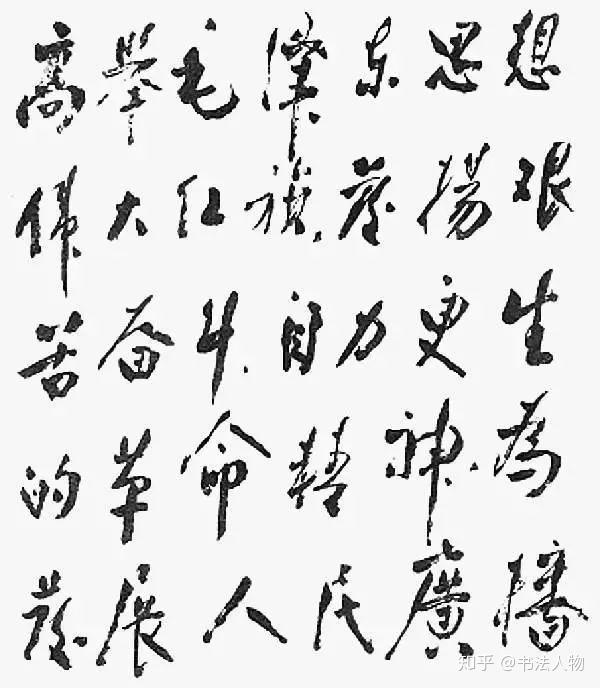 高舉毛澤东思想
偉大红旗发揚艰
苦奋斗自力更生
的革命精神為
发展人民廣播
知乎 @书法人物